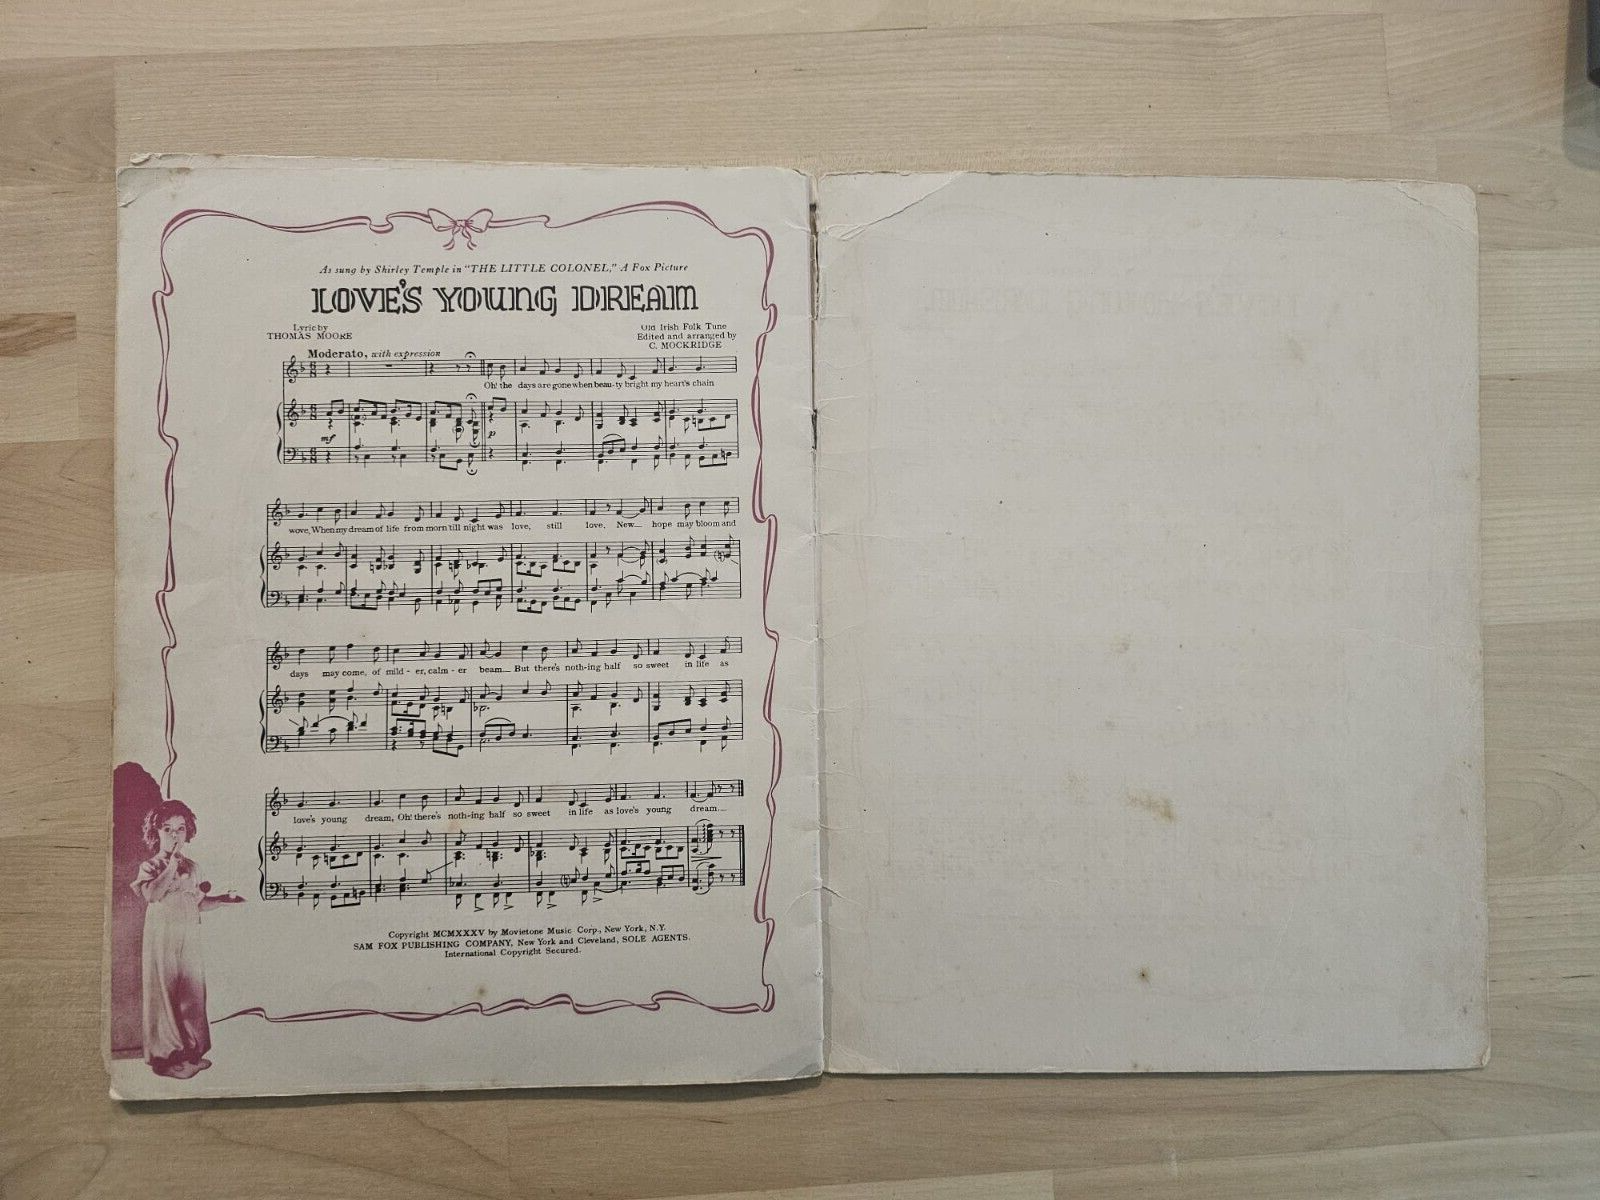 As sung by Shirley Temple in "THE LITTLE COLONEL," A Fox Picture
LOVE'S YOUNG DREAM
Lyric by
THOMAS MOORE
Old Irish Folk Tune
Edited and arranged by
C. MOCKRIDGE
Moderato, with expression
Oh! the days are gone when beau-ty bright my heart's chain
mf
p
wove, When my dream of life from morn till night was love, still love, New hope may bloom and
days may come, of mild - er, calm - er beam But there's noth-ing half so sweet in life as
love's young dream, Oh! there's noth-ing half so sweet in life as love's young dream.
Copyright MCMXXXV by Movietone Music Corp., New York, N.Y.
SAM FOX PUBLISHING COMPANY, New York and Cleveland, SOLE AGENTS.
International Copyright Secured.